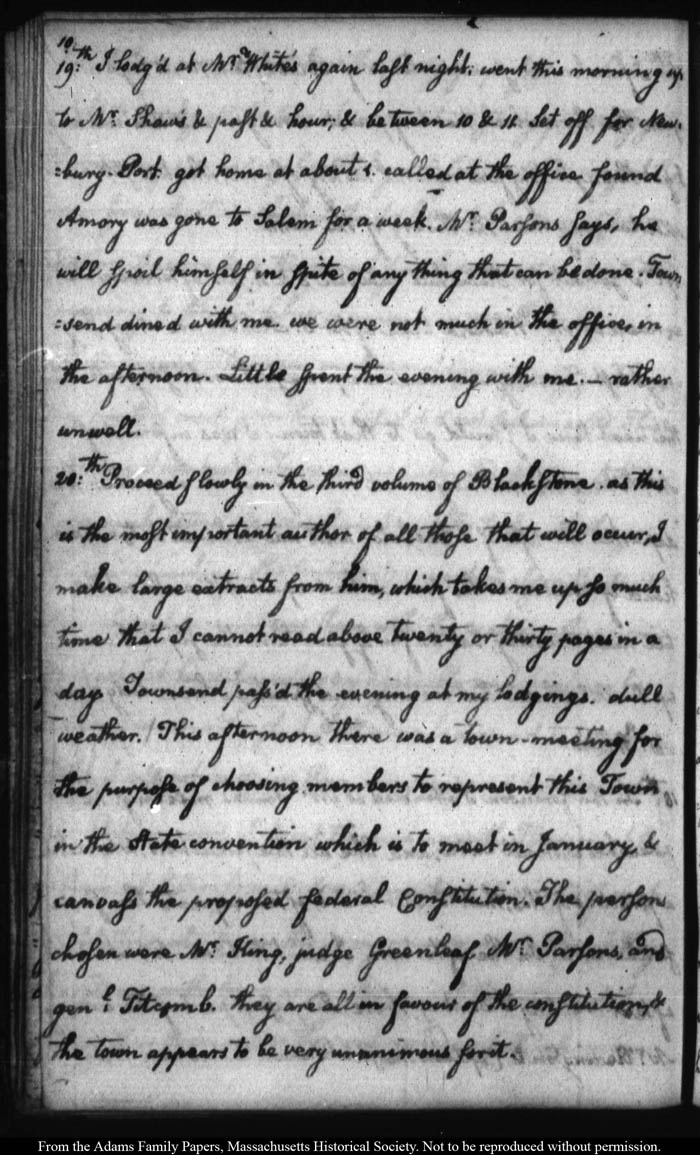 19.th
19:th I lodg'd at Mrs. White's again last night: went this morning up
to Mr. Shaw's & past & hour; & between 10 & 11 set off for New-
=bury-Port. got home at about 1. called at the office found
Amory was gone to Salem for a week. Mr. Parsons says, he
will spoil himself in spite of any thing that can be done. Town
=send dined with me. we were not much in the office, in
the afternoon. Little spent the evening with me. — rather
unwell.
20:th Proceed slowly in the third volume of Blackstone. as this
is the most important author of all those that will occur, I
make large extracts from him, which takes me up so much
time that I cannot read above twenty or thirty pages in a
day. Townsend pass'd the evening at my lodgings. dull
weather. This afternoon there was a town-meeting for
the purpose of choosing members to represent this Town
in the State convention which is to meet in January, &
canvass the proposed federal Constitution. The persons
chosen were Mr. King, judge Greenleaf, Mr. Parsons, and
genl. Titcomb. they are all in favour of the constitution, &
the town appears to be very unanimous for it.
From the Adams Family Papers, Massachusetts Historical Society. Not to be reproduced without permission.